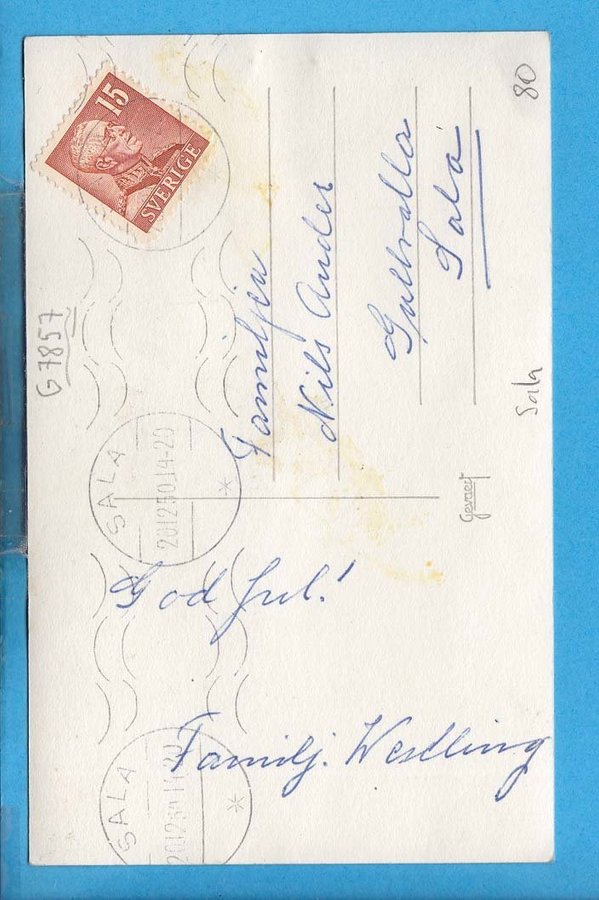 God Jul!
Familj. Westling
Familjen
Nils Ander
Gullvalla
Sala
15
SVERIGE
SALA
20.12.50.14-20
SALA
20.12.50.14-20
G 7857
80
Sala
Gevaert